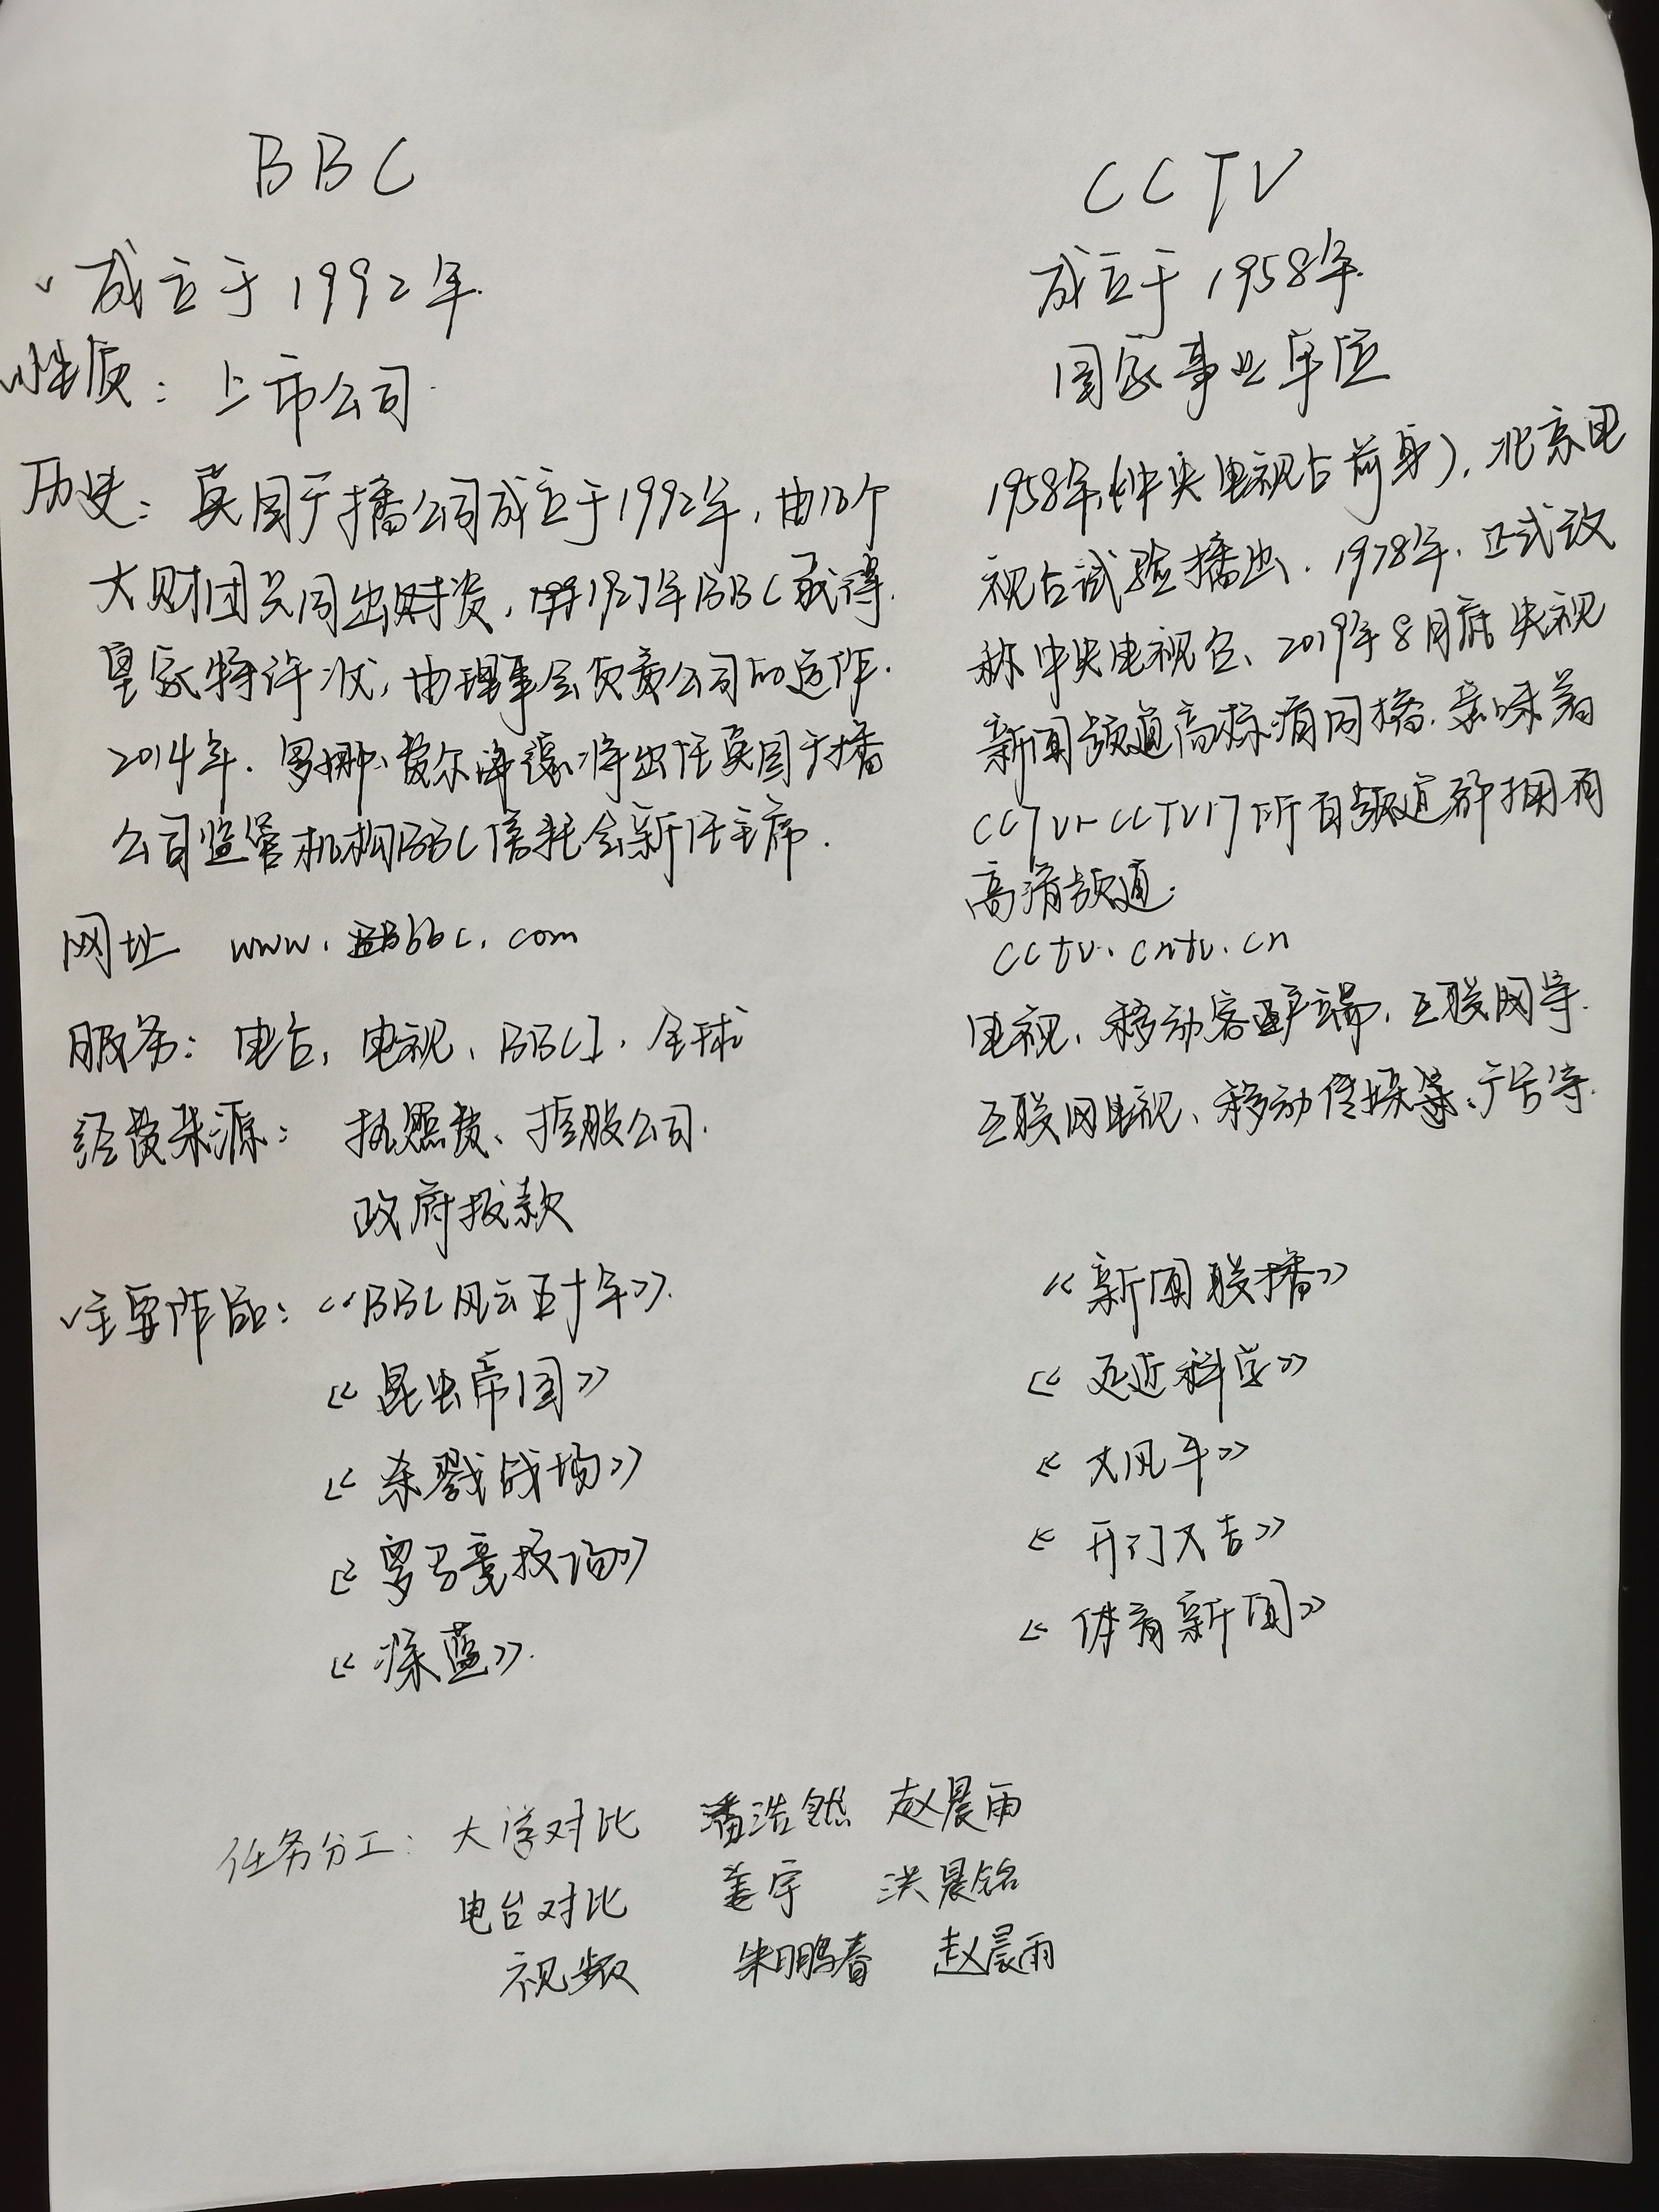 BBC
成立于1992年.
性质：上市公司.
历史：英国广播公司成立于1992年，由几个
大财团共同出资，1927年BBC获得.
皇家特许状，由理事会负责公司的运作.
2014年.罗娜·费尔海德将出任英国广播
公司监管机构BBC信托会新任主席.
网址 www.bbc.com
服务：电台，电视、BBCI，全球
经费来源：执照费、控股公司.
政府拨款
主要作品：《BBC风云五十年》.
《昆虫帝国》
《杀戮战场》
《罗马竞技场》
《深蓝》.
CCTV
成立于1958年.
国家事业单位
1958年,(中央电视台前身)，北京电
视台试验播出.1978年.正式改
称中央电视台、2019年8月底央视
新闻频道高标清同播.意味着
CCTV1-CCTV17所有频道都拥有
高清频道.
cctv.cntv.cn
电视、移动客户端，互联网等.
互联网电视、移动传媒、广告等.
《新闻联播》
《走近科学》
《大风车》
《开门大吉》
《体育新闻》
任务分工：大学对比 潘浩然 赵晨雨
电台对比 姜宇 洪晨铭
视频 朱鹏春 赵晨雨